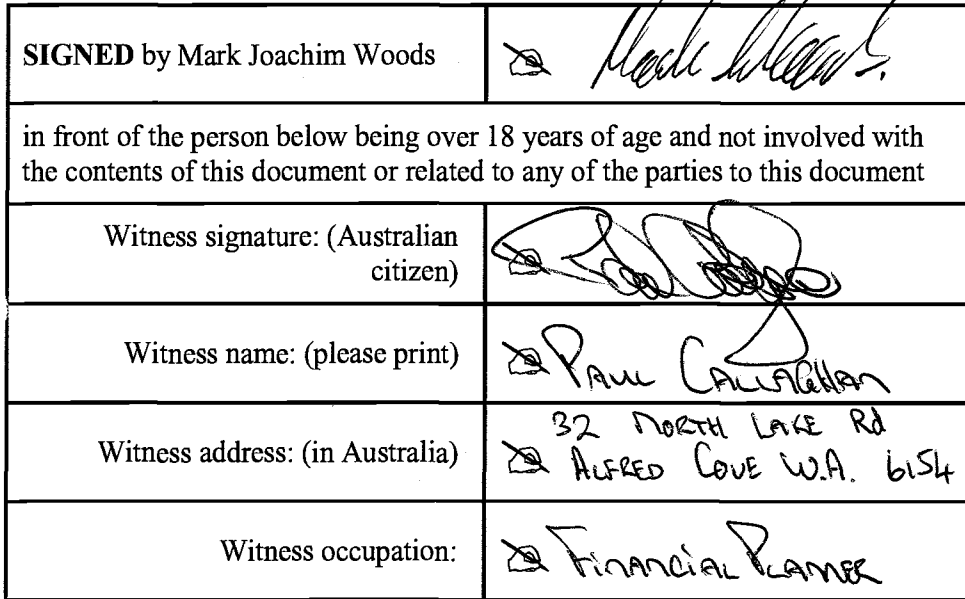 SIGNED by Mark Joachim Woods
Mark Woods.
in front of the person below being over 18 years of age and not involved with
the contents of this document or related to any of the parties to this document
Witness signature: (Australian
citizen)
Witness name: (please print)
PAUL CALLAGHAN
Witness address: (in Australia)
32 NORTH LAKE Rd
ALFRED COVE W.A. 6154
Witness occupation:
FINANCIAL PLANNER